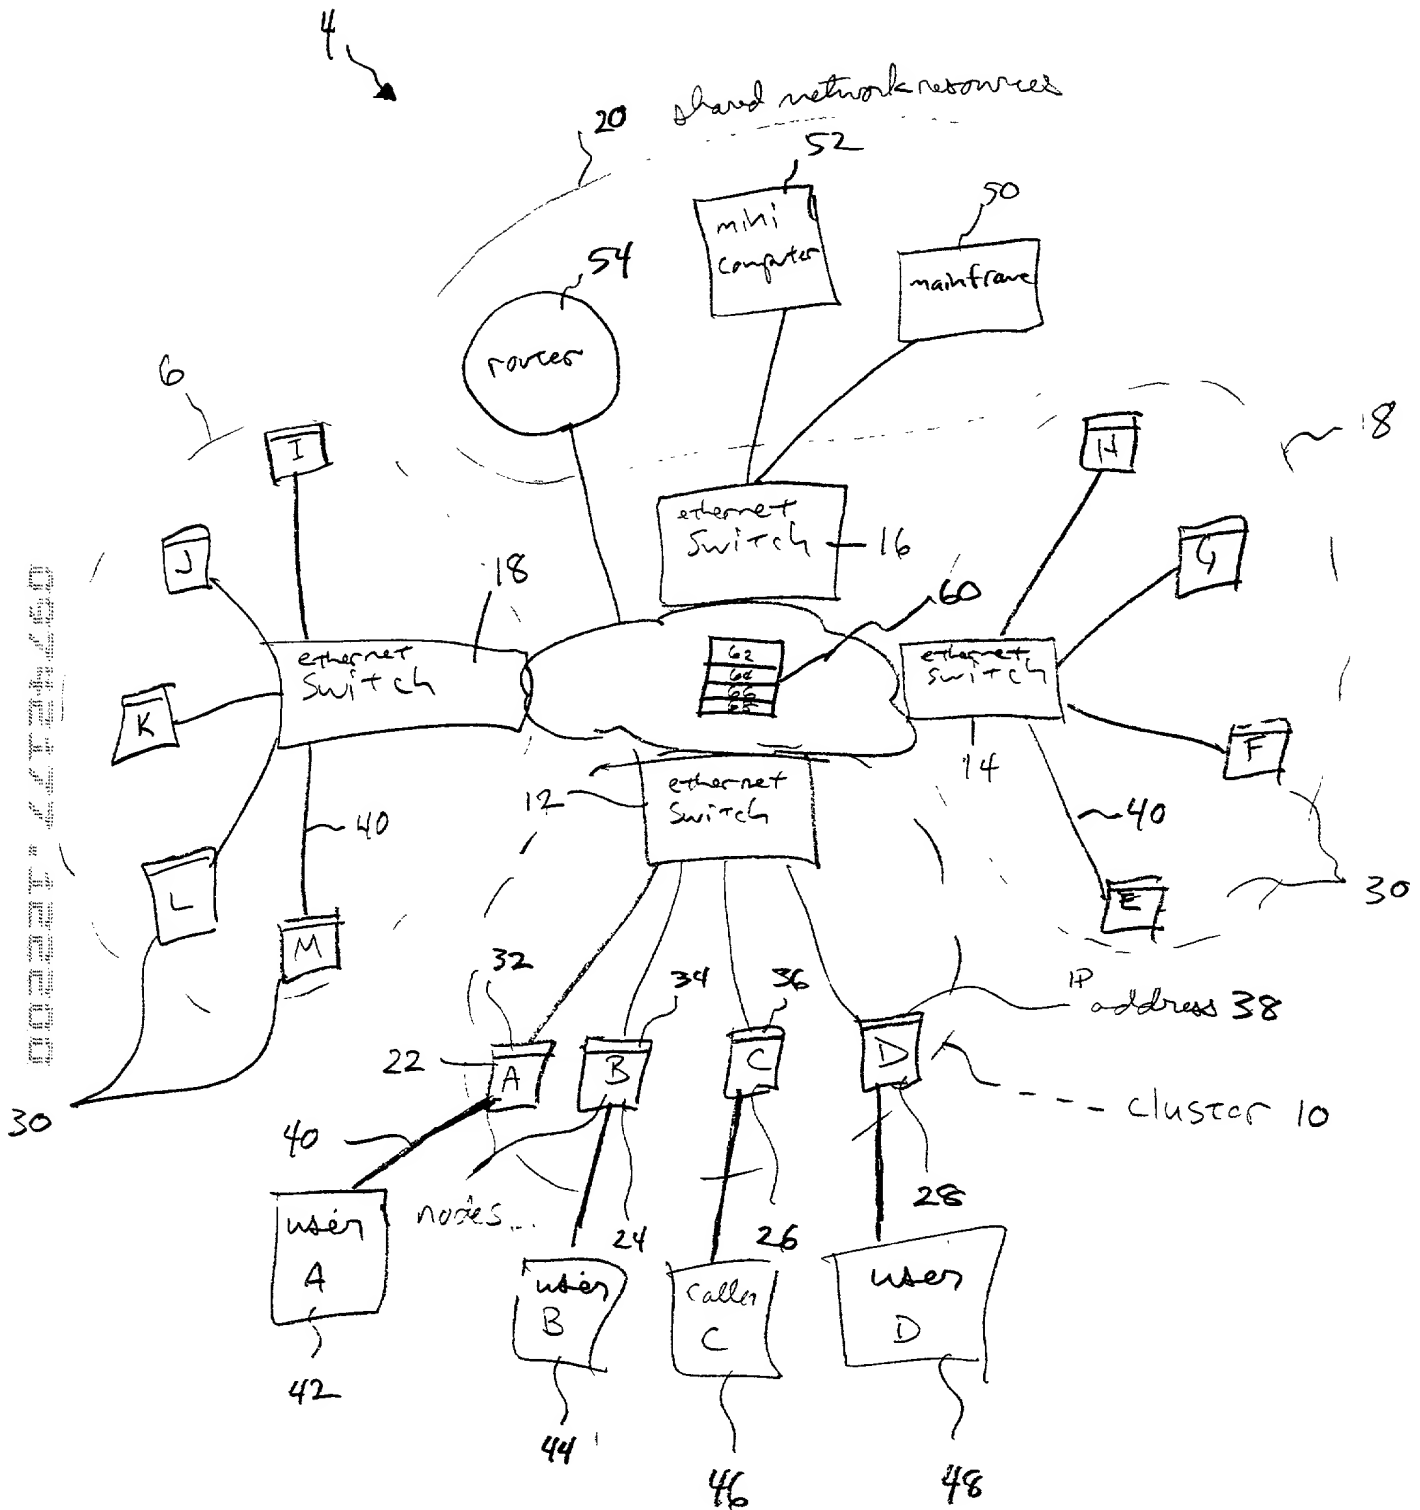 4
20 shared network resources
52
50
mini
computer
mainframe
54
router
6
18
I
H
J
G
ethernet
switch
16
18
60
ethernet
switch
62
64
66
ethernet
switch
K
F
14
12
ethernet
switch
40
40
L
E
30
M
32
34
36
IP
address 38
22
A
B
C
D
cluster 10
30
40
nodes...
28
24
26
user
A
user
B
caller
C
user
D
42
44
46
48
09742177.122200